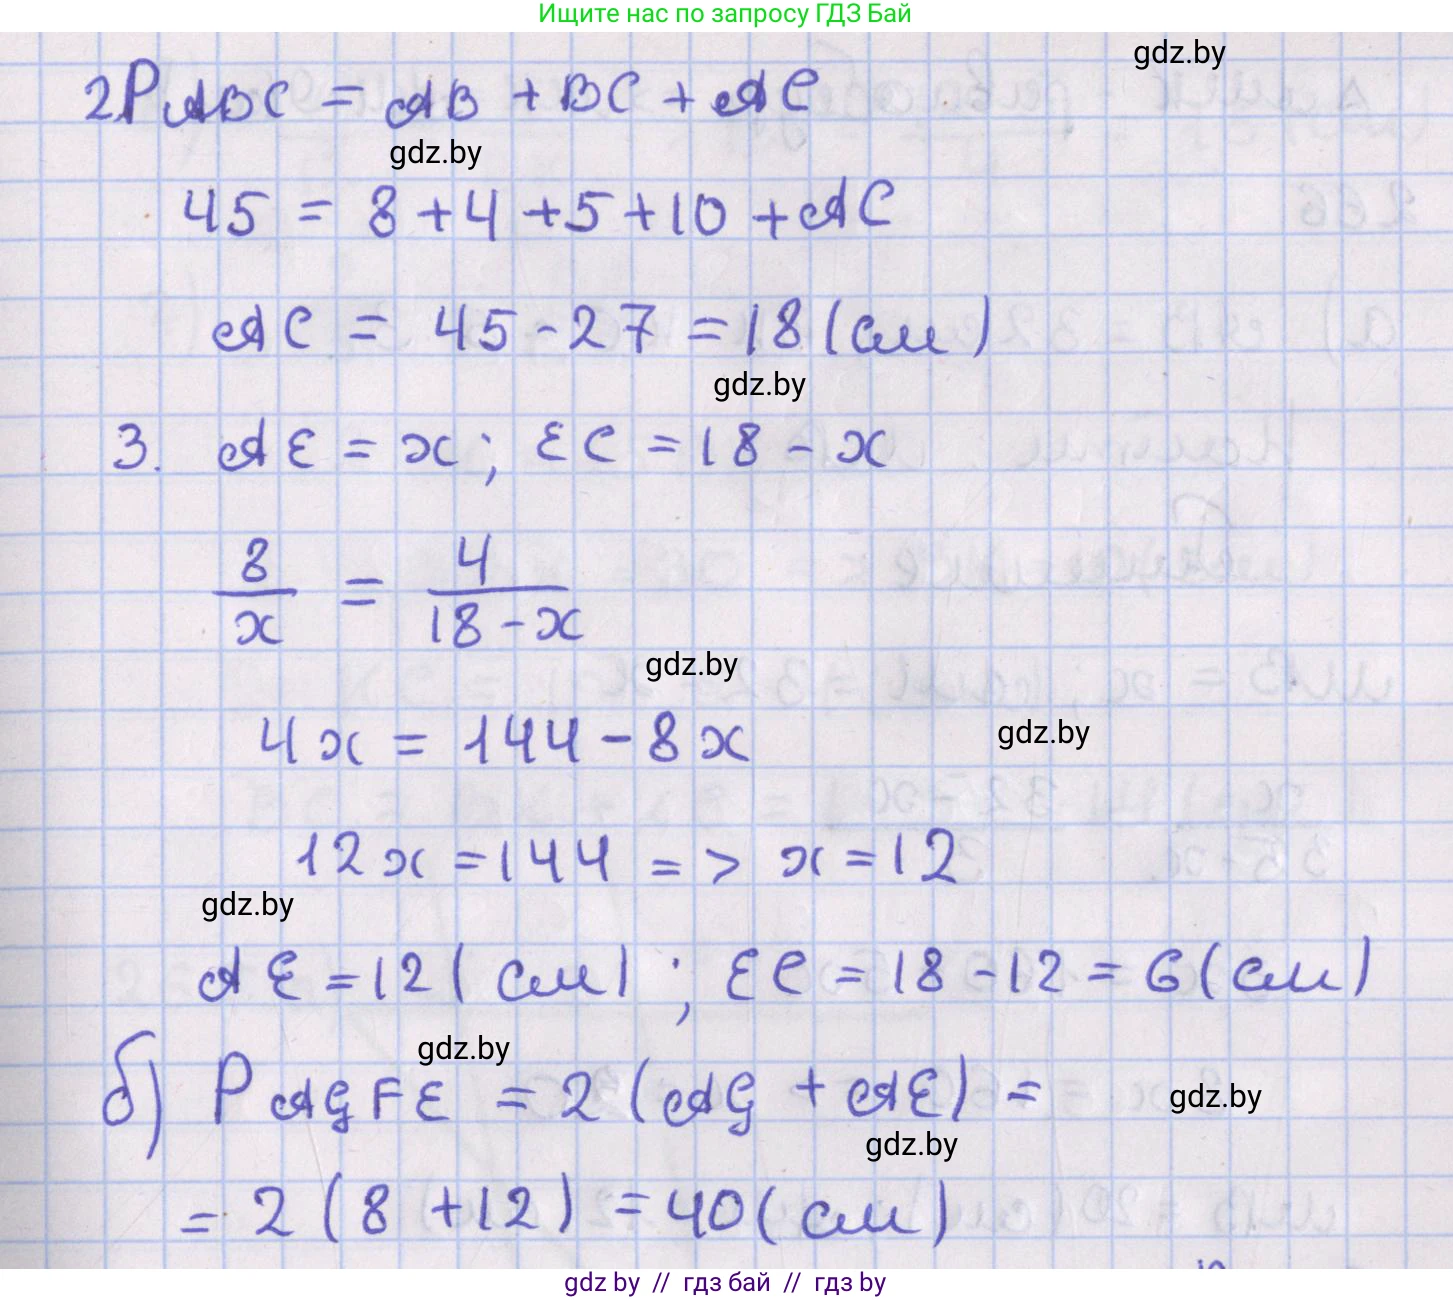 Ищите нас по запросу ГДЗ Бай
gdz.by
2. P ABC = AB + BC + AC
gdz.by
45 = 8 + 4 + 5 + 10 + AC
AC = 45 - 27 = 18 (см)
gdz.by
3. AE = x; EC = 18 - x
8/x = 4/(18 - x)
gdz.by
gdz.by
4x = 144 - 8x
12x = 144 => x = 12
gdz.by
AE = 12 (см); EC = 18 - 12 = 6 (см)
gdz.by
б) P AGFE = 2 (AG + AE) =
gdz.by
gdz.by
= 2 (8 + 12) = 40 (см)
gdz by // гдз бай // гдз by